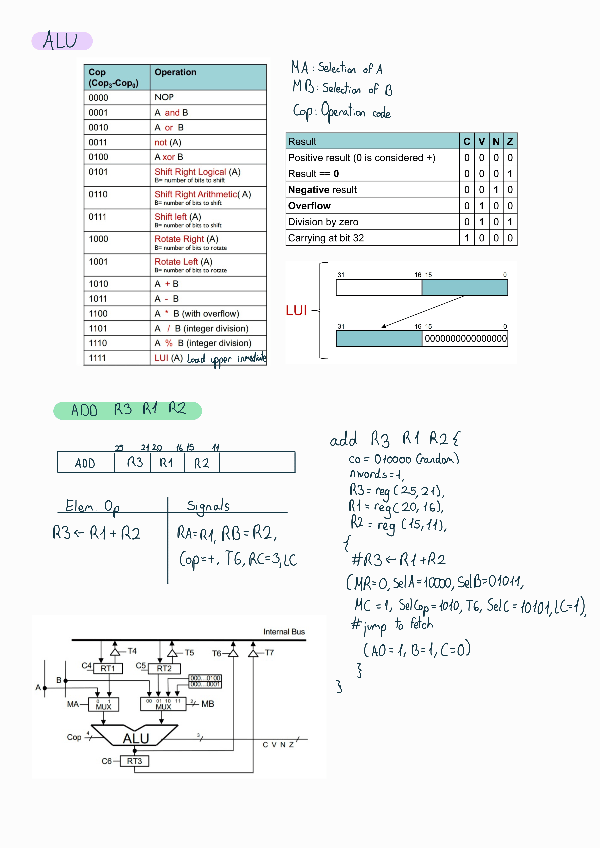 ALU
Cop (Cop3-Cop0) Operation
0000 NOP
0001 A and B
0010 A or B
0011 not (A)
0100 A xor B
0101 Shift Right Logical (A)
B= number of bits to shift
0110 Shift Right Arithmetic( A)
B= number of bits to shift
0111 Shift left (A)
B= number of bits to shift
1000 Rotate Right (A)
B= number of bits to rotate
1001 Rotate Left (A)
B= number of bits to rotate
1010 A + B
1011 A - B
1100 A * B (with overflow)
1101 A / B (integer division)
1110 A % B (integer division)
1111 LUI (A) Load upper inmediate
MA: Selection of A
MB: Selection of B
Cop: Operation code
Result C V N Z
Positive result (0 is considered +) 0 0 0 0
Result == 0 0 0 0 1
Negative result 0 0 1 0
Overflow 0 1 0 0
Division by zero 0 1 0 1
Carrying at bit 32 1 0 0 0
LUI
31 16 15 0
31 16 15 0
0000000000000000
ADD R3 R1 R2
25 21 20 16 15 11
ADD R3 R1 R2
Elem Op Signals
R3 ← R1 + R2 RA=R1, RB=R2,
Cop=+, T6, RC=3, LC
add R3 R1 R2 {
co = 010000 (random)
nwords=1,
R3 = reg(25,21),
R1 = reg(20,16),
R2 = reg (15,11),
{
#R3 ← R1 + R2
(MR=0, SelA=10000, SelB=01011,
MC=1, SelCop=1010, T6, SelC=10101, LC=1),
#jump to fetch
(A0=1, B=1, C=0)
}
}
Internal Bus
T4 T5 T6 T7
C4 RT1 C5 RT2
000...0100
000...0001
A B
MA 0 1 MUX 00 01 10 11 MUX 2 MB
Cop 4 ALU 3 C V N Z
C6 RT3